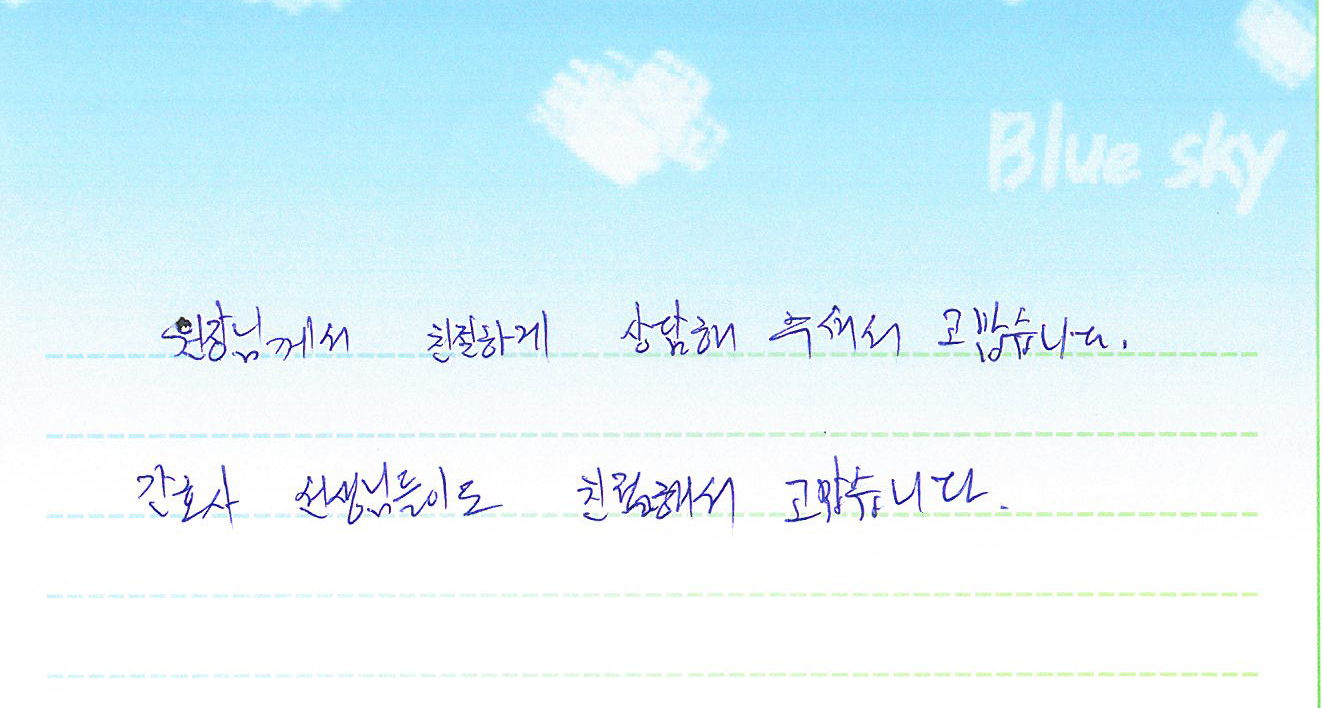 Blue sky
원장님께서 친절하게 상담해 주셔서 고맙습니다.
간호사 선생님들이도 친절해서 고맙습니다.